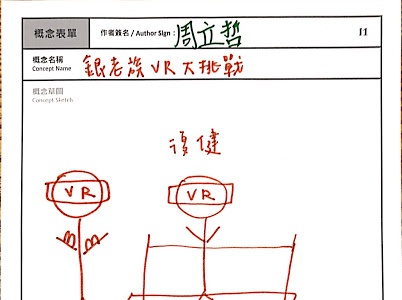 概念表單
作者簽名 / Author Sign : 周立哲
I1
概念名稱
Concept Name
銀老族VR大挑戰
概念草圖
Concept Sketch
復健
VR
VR